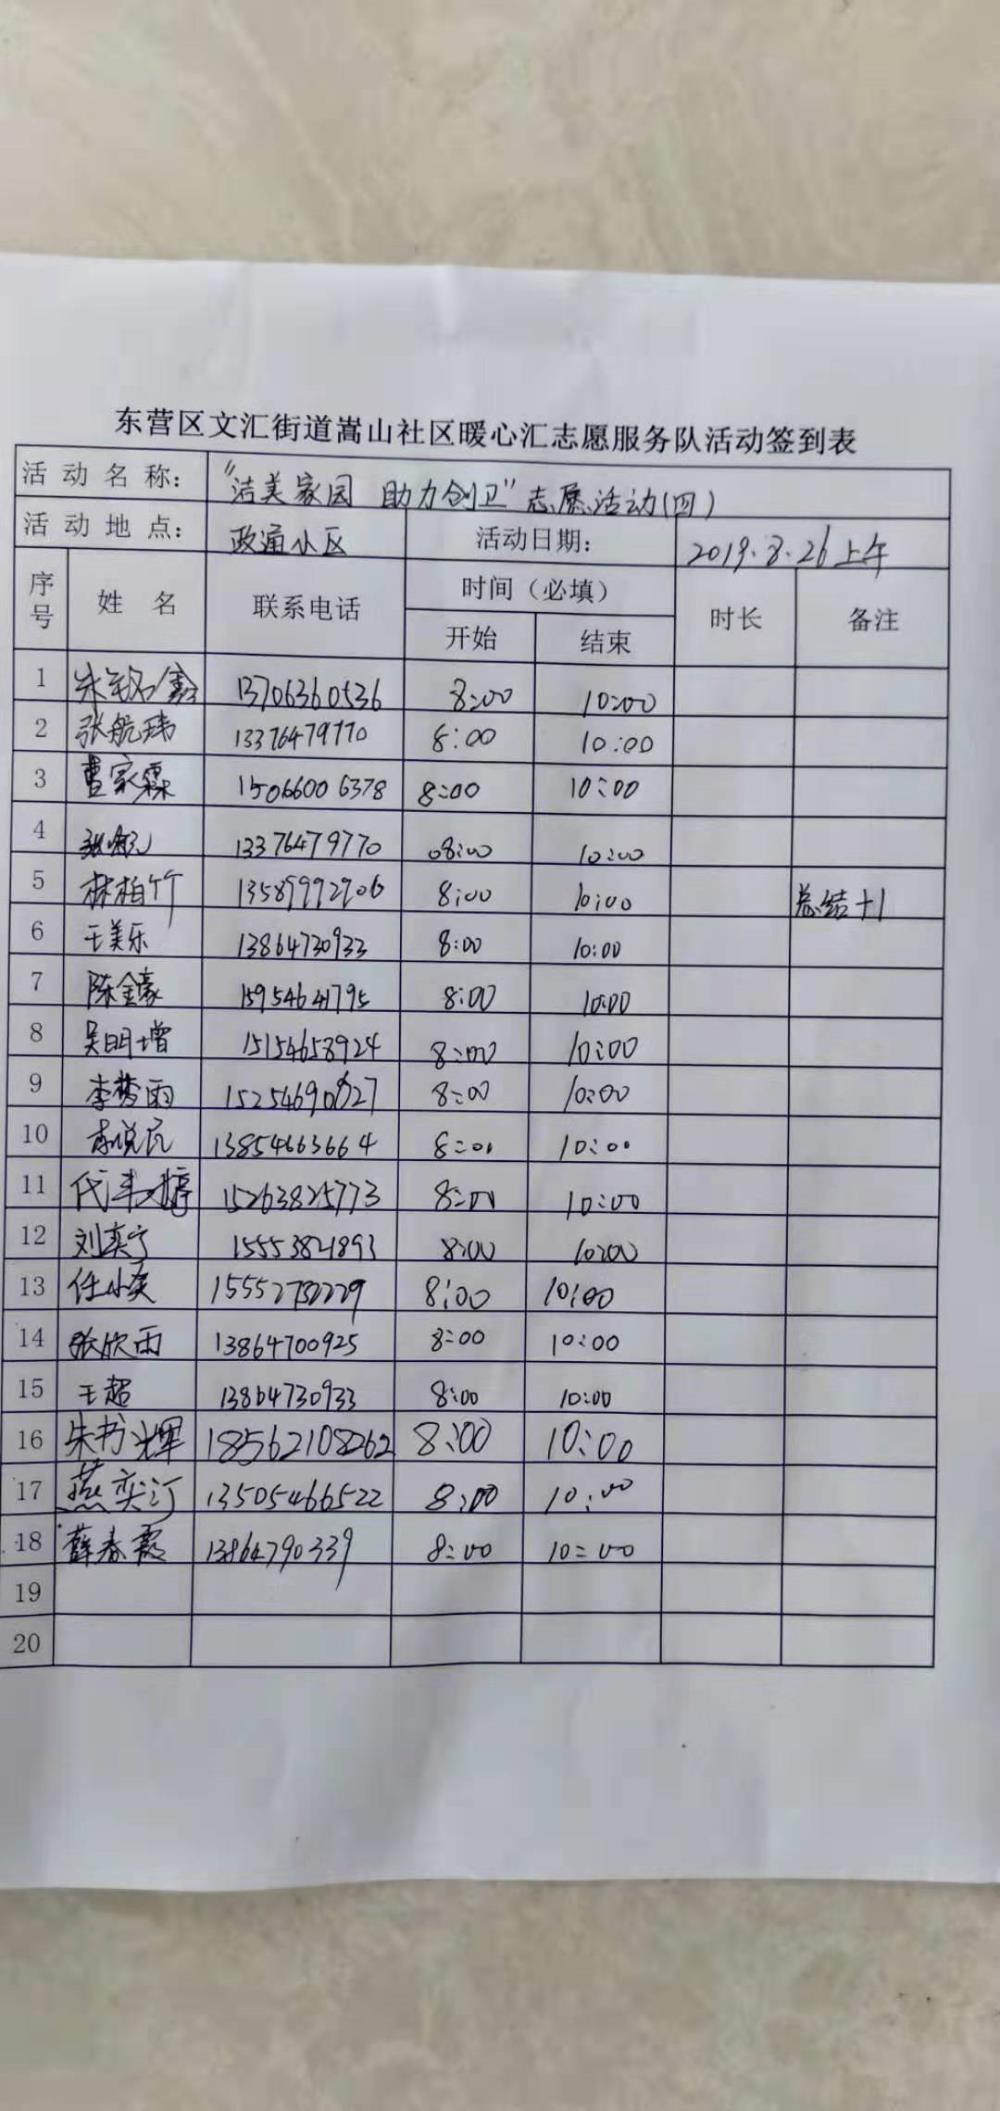 东营区文汇街道嵩山社区暖心汇志愿服务队活动签到表
活动名称： “洁美家园 助力创卫”志愿活动(四)
活动地点： 政通小区 活动日期： 2019.8.26上午
序号 姓名 联系电话 时间（必填） 时长 备注
开始 结束
1 朱 鑫 13706360536 8:00 10:00
2 张航玮 13376479770 8:00 10:00
3 曹家霖 15066006378 8:00 10:00
4 张 13376479770 08:00 10:00
5 林柏竹 13589992906 8:00 10:00 总结+1
6 王美乐 13864730933 8:00 10:00
7 陈金豪 15954641795 8:00 10:00
8 吴明增 15154658924 8:00 10:00
9 李梦雨 8:00 10:00
10 13854663664 8:00 10:00
11 代 15263825773 8:00 10:00
12 刘奕宁 15553821893 8:00 10:00
13 任小奕 8:00 10:00
14 张欣雨 13864700925 8:00 10:00
15 王超 13864730933 8:00 10:00
16 朱书辉 18562108262 8:00 10:00
17 燕奕汀 13505466522 8:00 10:00
18 薛春霞 13864790339 8:00 10:00
19
20